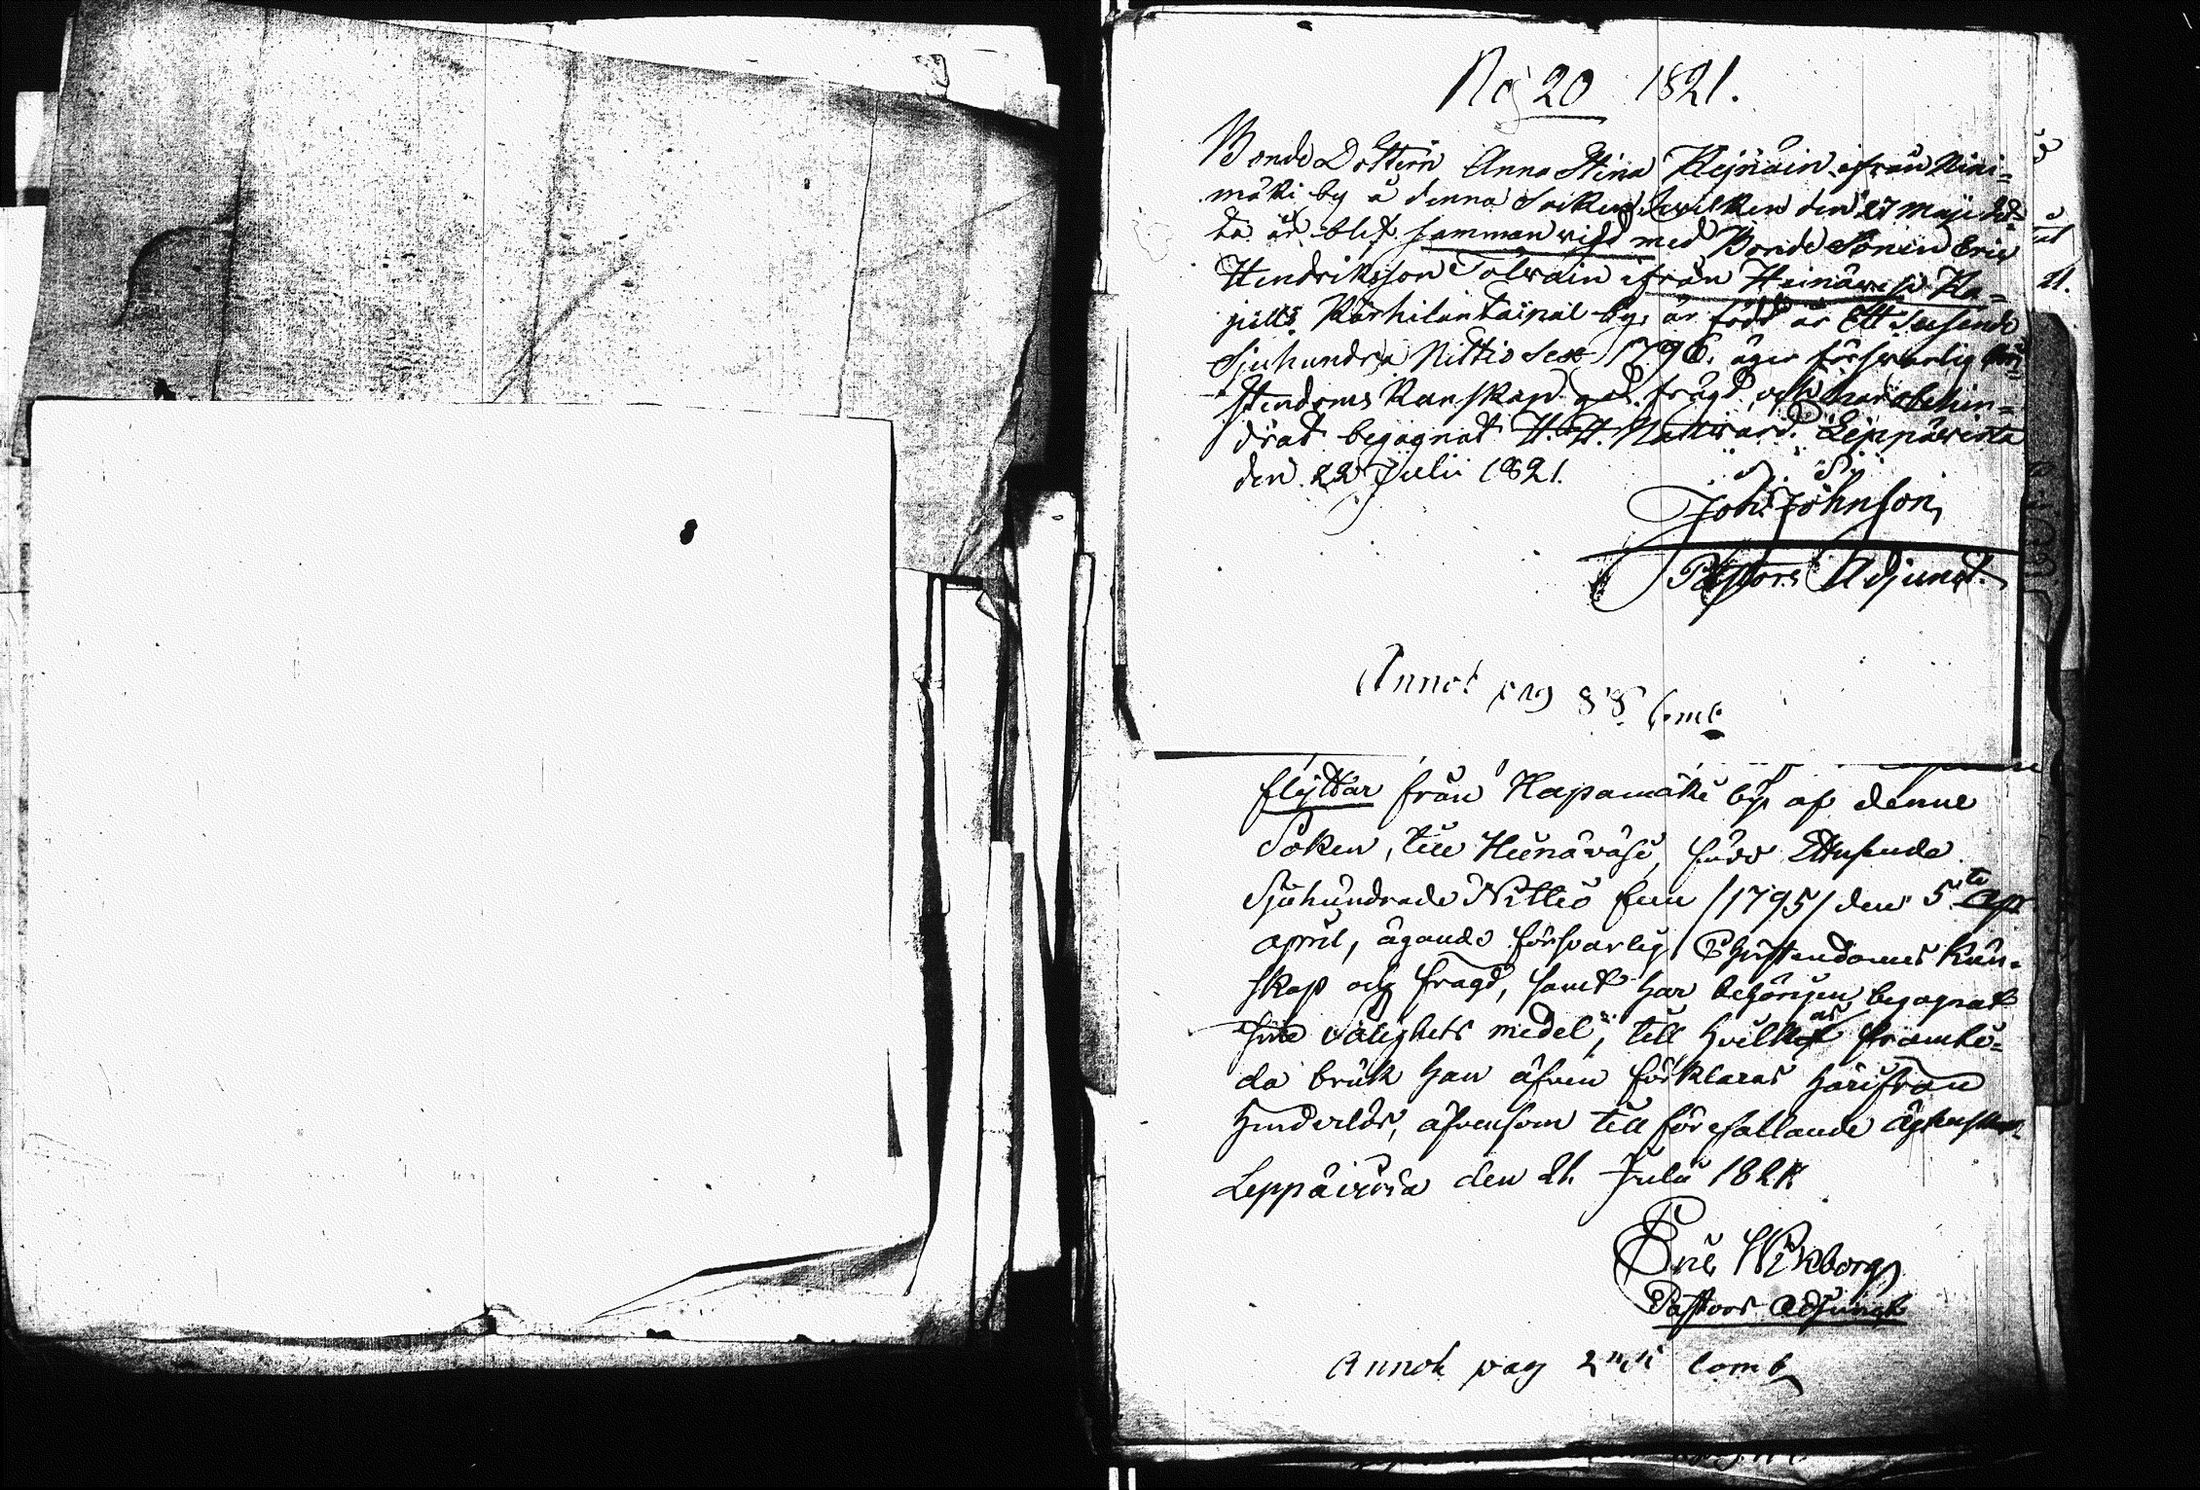 No 20 1821.
Bonde Dottern Anna Stina Kejnäin ifrån Nini=
mäki by å denna Soiken hvilken den 27 Maji det=
ta år blef sammanvigd med Bonde Sonen Eric
Hendriksson Tolvain ifrån Heinävesi Ka=
pells Karhilantaipal by, är född år Ett Tusende
Sjuhundra Nittio Sex 1796. äger försvarlig Kri=
stendoms Kunskap god frägd, och har obehin=
drat begagnat H. H. Nattvard. Leppävirta
den 22 Julii 1821.
Joh: Johnson,
Pastors Adjunct.
Annot pag 88 Comb
flyttar från Hapamäki by af denne
Soken, till Heinäväsi, född Ettusende
Sjuhundrade Nittio fem /1795/ den 5te
April, ägande försvarlig Christendoms Kun=
skap och fragd, samt har behörigen begagnat
sine salighets medel, till hvilkas framte=
da bruk han äfven förklaras härifrån
hinderlös, äfvensom till förefallande
Leppävirta den 21. Julii 1821
Eric Wikborg
Pastors Adjunct
Annot pag comb